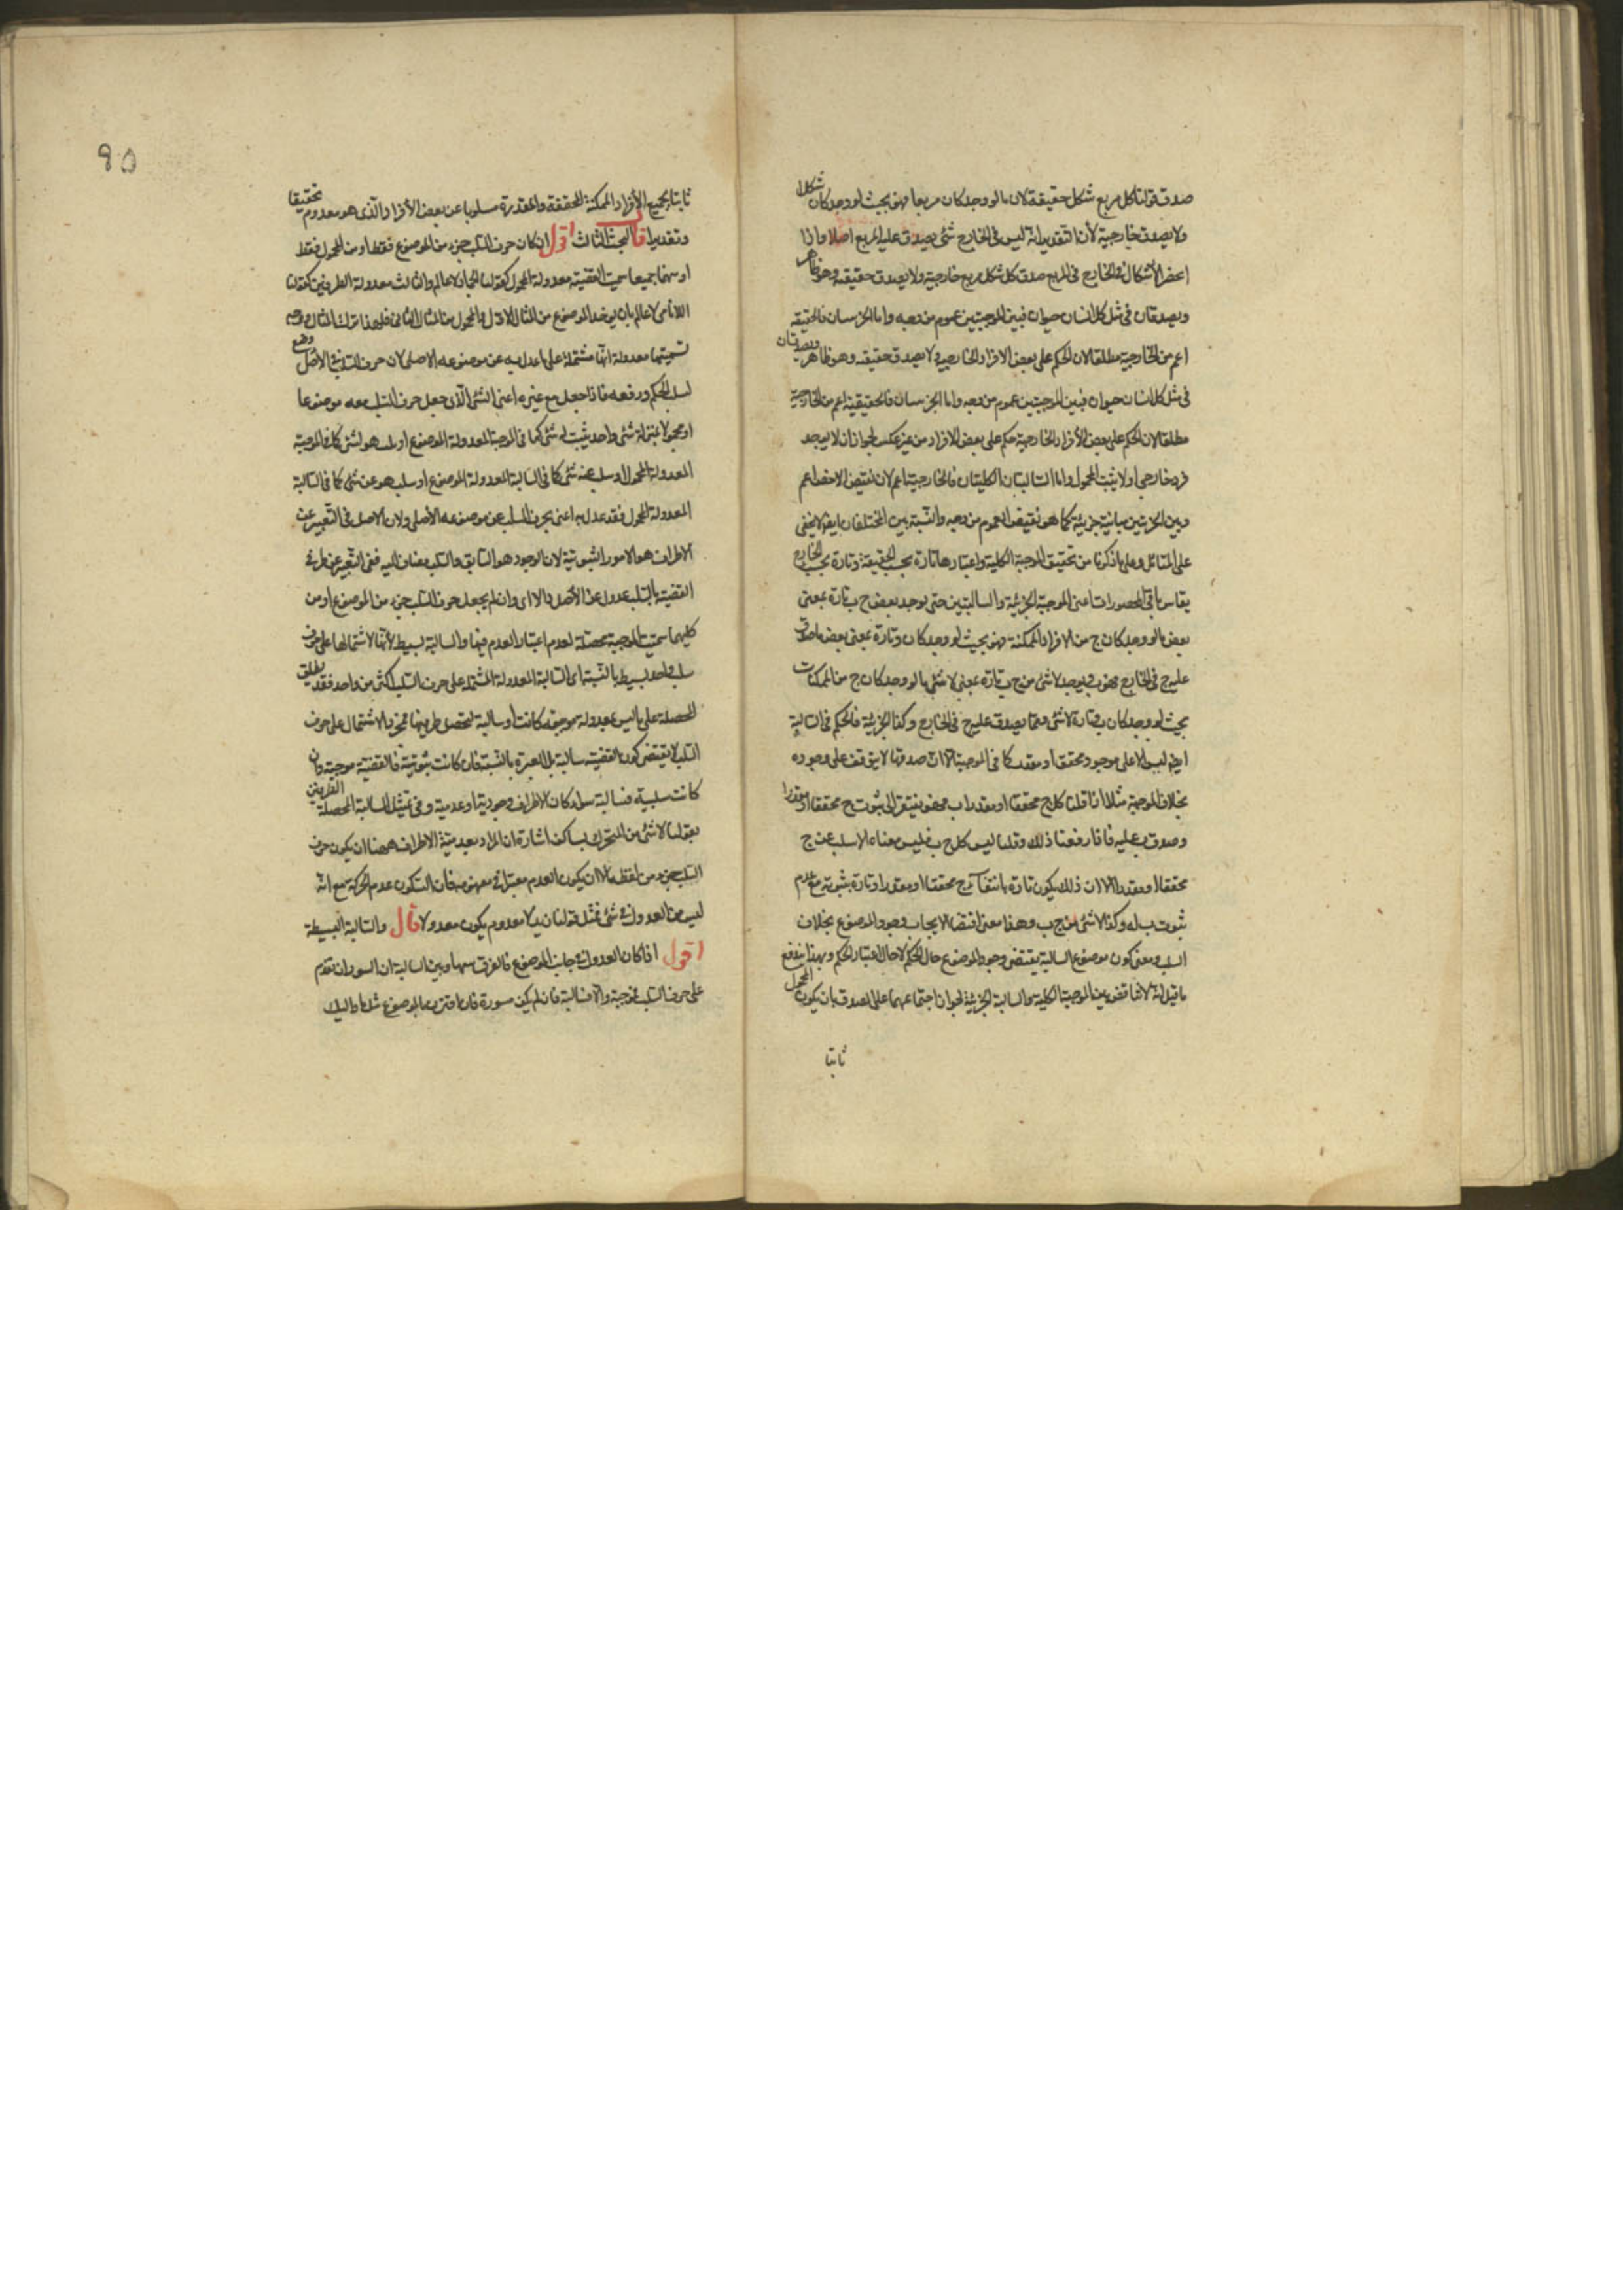 صدق قولنا كل مربع شكل حقيقة لان ما لو وجد كان مربعا فهو بحيث لو وجد كان شكلا
ولا يصدق خارجية لأن التقدير انه ليس فى الخارج شئ يصدق عليه المربع اصلا واذا
انحصر الاشكال فى الخارج فى المربع صدق كل شكل مربع خارجية ولا يصدق حقيقه وهو ظاهر
ويصدقان فى مثل كل انسان حيوان فبين الموجبتين عموم من وجه واما الجزئيتان فالحقيقه
اعم من الخارجية مطلقا لان الحكم على بعض الافراد الخارجية لا يصدق حقيقه وهو ظاهر ويصدقان
فى مثل كل انسان حيوان فبين الموجبتين عموم من وجه واما الجزئيتان فالحقيقية اعم من الخارجية
مطلقا لان الحكم على بعض الأفراد الخارجية حكم على بعض الافراد من غير عكس لجواز ان لا يوجد
فرد خارجى او لا يثبت المحمول واما السالبتان الكليتان فالخارجية اعم لان نقيض الاخص اعم
وبين الجزئيتين مباينة جزئية كما هو نقيض العموم من وجه والنسبة بين المختلفان ايضا لا يخفى
على المتأمل وعلى ما ذكرنا من تحقيق الموجبة الكلية واعتبارها تارة بحسب الحقيقة وتارة بحسب الخارج
يقاس باقى المحصورات اعنى الموجبة الجزئية والسالبتين حتى يوجد بعض ج ب تارة بمعنى
بعض ما لو وجد كان ج من الافراد الممكنة فهو بحيث لو وجد كان وتارة بمعنى بعض ما صدق
عليه ج فى الخارج فهو ب ويوجد لا شئ من ج ب تارة بمعنى لا شئ ما لو وجد كان ج من الممكنات
بحيث لو وجد كان ب وتارة لا شئ مما يصدق عليه ج فى الخارج وكذا الجزئية فالحكم فى السالبة
ايضا ليس الا على موجود محقق او مقدر كما فى الموجبة الا ان صدقها لا يتوقف على وجوده
بخلاف الموجبة مثلا اذا قلنا كل ج محققا او مقدرا ب فهو يفتقر الى ثبوت ج محققا او مقدرا
وصدق ب عليه فاذا رفعنا ذلك وقلنا ليس كل ج ب فليس معناه الا سلب عن ج
محققا او مقدرا الا ان ذلك يكون تارة بانتفاء ج محققا او مقدرا وتارة بثبوته مع عدم
ثبوت ب له وكذا لا شئ من ج ب وهذا معنى اقتضاء الايجاب وجود الموضوع بخلاف
السلب ومعنى كون موضوع السالبة يقتضى وجود الموضوع حال الحكم لا حال اعتبار الحكم وبهذا يندفع
ما قيل انه لا تناقض بين الموجبة الكلية والسالبة الجزئية لجواز اجتماعهما على الصدق بان يكون المحمول
ثابتا
٩٥
ثابتا لجميع الأفراد الممكنة المحققة والمقدرة مسلوبا عن بعض الأفراد الذى هو معدوم تحقيقا
وتقديرا قال البحث الثالث اقول ان كان حرف السلب جزء من الموضوع فقط او من المحمول فقط
او منهما جميعا سميت القضية معدولة المحمول كقولنا الجماد لا عالم والثالث معدولة الطرفين كقولنا
اللانامى لا عالم بان يوخذ الموضوع من المثال الاول والمحمول من المثال الثانى فلهذا ترك المثال ووجه
تسميتها معدولة انها مشتملة على ما عدل به عن موضوعه الاصلى لان حرف السلب فى الأصل وضع
لسلب الحكم ورفعه فاذا جعل مع غيره اعنى الشئ الذى جعل حرف السلب معه موضوعا
او محمولا بمنزلة شئ واحد يثبت له شئ كما فى الموجبة المعدولة الموضوع او يثبت هو لشئ كما فى الموجبة
المعدولة المحمول او سلب عنه شئ كما فى السالبة المعدولة الموضوع او سلب هو عن شئ كما فى السالبة
المعدولة المحمول فقد عدل به اعنى بحرف السلب عن موضوعه الأصلى ولان الاصل فى التعبير عن
الاطراف هو الامور الثبوتية لان الوجود هو السابق والسلب مضاف اليه ففى التعبير عن طرفى
القضية بالسلب عدول عن الأصل والا اى وان لم يجعل حرف السلب جزء من الموضوع او من
كليهما سميت الموجبة محصلة لعدم اعتبار العدم فيها والسالبة بسيطة لأنها لاشتمالها على حرف
سلب واحد بسيط بالنسبة الى السالبة المعدولة المشتملة على حرف السلب اكثر من واحد فقد يطلق
المحصلة على ما ليس بمعدولة موجبة كانت أو سالبة لتحصل طرفيها فمجرد الاشتمال على حرف
السلب لا يقتضى كون القضية سالبة بل العبرة بالنسبة فان كانت ثبوتية فالقضية موجبة وان
كانت سلبية فسالبة سواء كان الاطراف وجودية او عدمية وفى تمثيل السالبة المحصلة الطرفين
بقولنا لا شئ من المتحرك بساكن اشارة ان المراد بعدمية الاطراف ههنا ان يكون حرف
السلب جزء من لفظه لا ان يكون العدم معتبرا فى مفهومه فان السكون عدم الحركة مع انه
ليس من العدول فى شئ فمثل قولنا زيد لا معدوم يكون معدولا قال والسالبة البسيطة
اقول اذا كان العدول فى جانب الموضوع فالفرق بينها وبين السالبة ان السور ان تقدم
على حرف السلب فموجبة والا فسالبة فان لم يكن مسورة فان اقترن بما الموضوع مثل ما واليك